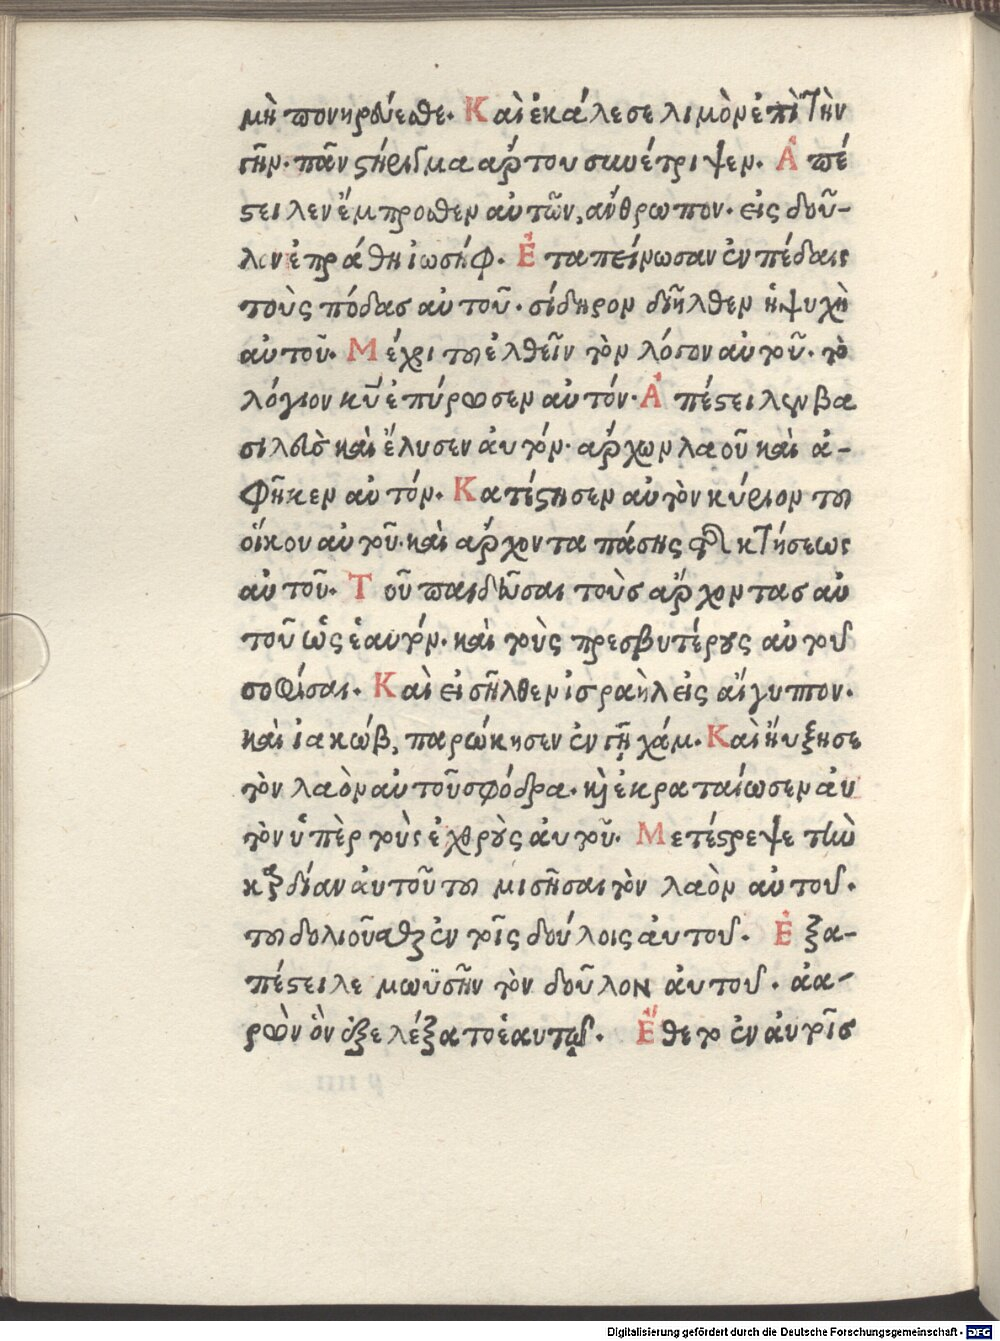 μὴ πονηρεύεσθε. Καὶ ἐκάλεσε λιμὸν ἐπὶ τὴν
γῆν. πᾶν στήριγμα ἄρτου συνέτριψεν. Ἀπέ
στειλεν ἔμπροσθεν αὐτῶν, ἄνθρωπον. εἰς δοῦ-
λον ἐπράθη ἰωσήφ. Ἐταπείνωσαν ἐν πέδαις
τοὺς πόδας αὐτοῦ. σίδηρον διῆλθεν ἡ ψυχὴ
αὐτοῦ. Μέχρι τοῦ ἐλθεῖν τὸν λόγον αὐτοῦ. τὸ
λόγιον κῡ ἐπύρωσεν αὐτόν. Ἀπέστειλεν βα
σιλεὺς καὶ ἔλυσεν ἀυτόν. ἄρχων λαοῦ καὶ ἀ-
φῆκεν αὐτόν. Κατέστησεν αὐτὸν κύριον τοῦ
οἴκου αὐτοῦ. καὶ ἄρχοντα πάσης τῆς κτήσεως
αὐτοῦ. Τοῦ παιδεῦσαι τοὺς ἄρχοντας αὐ
τοῦ ὡς ἑαυτόν. καὶ τοὺς πρεσβυτέρους αὐτοῦ
σοφίσαι. Καὶ εἰσῆλθεν ἰσραὴλ εἰς αἴγυπτον.
καὶ ἰακώβ, παρώκησεν ἐν γῇ χάμ. Καὶ ἤυξησε
τὸν λαὸν αὐτοῦ σφόδρα. κὶ ἐκραταίωσεν ἀυ
τὸν ὑπὲρ τοὺς ἐχθροὺς ἀυτοῦ. Μετέστρεψε τὴν
καρδίαν ἀυτοῦ τοῦ μισῆσαι τὸν λαὸν αὐτοῦ.
τοῦ δολιοῦσθαι ἐν τοῖς δούλοις ἀυτοῦ. Ἐξα-
πέστειλε μωϋσῆν τὸν δοῦλον ἀυτοῦ. ἀα-
ρὼν ὃν ἐξελέξατο ἑαυτῷ. Ἔθετο ἐν ἀυτοῖς